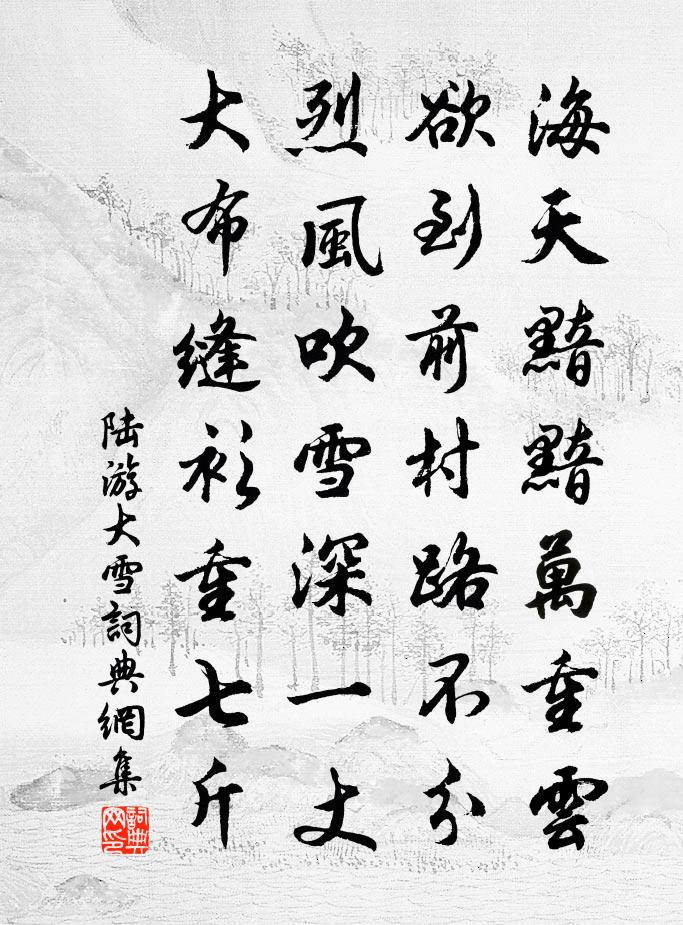 海天黯黯萬重雲
欲到前村路不分
烈風吹雪深一丈
大布縫衫重七斤
陆游大雪詞典網集
詞典网印